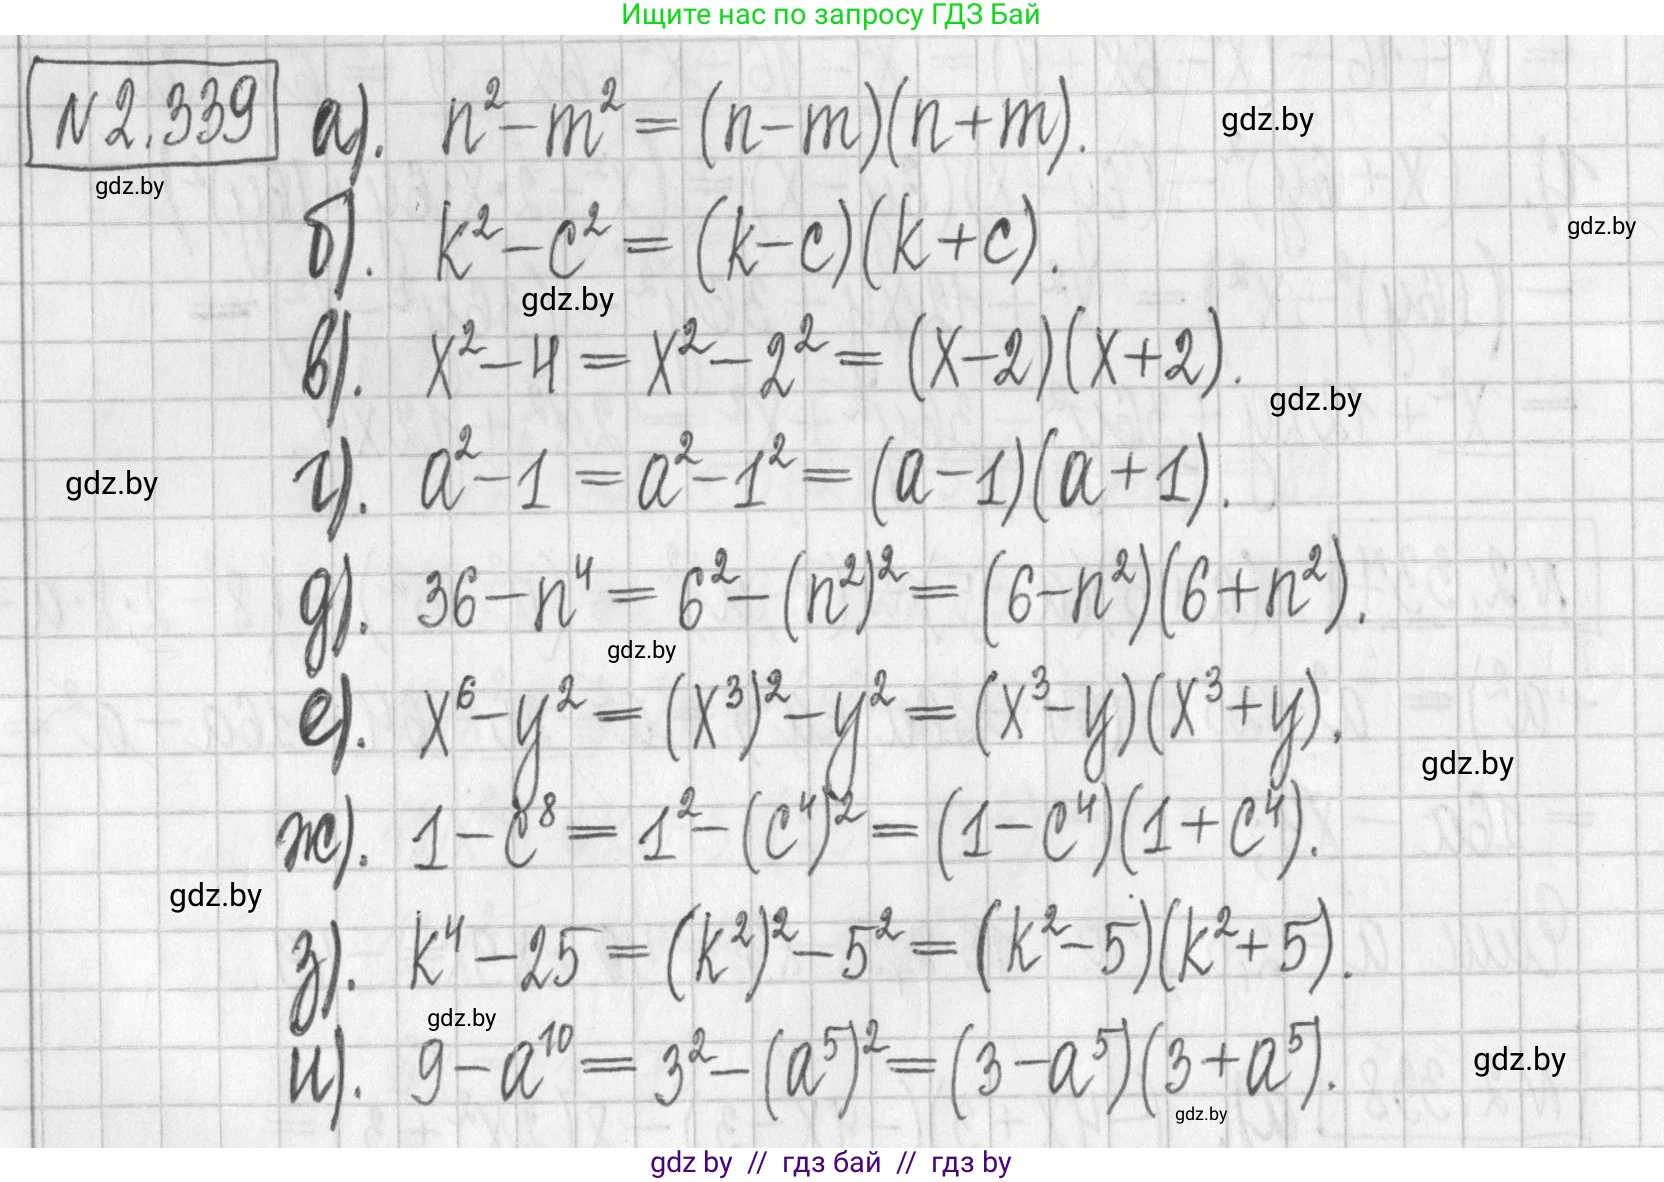 Ищите нас по запросу ГДЗ Бай
N2.339 а). n²-m²=(n-m)(n+m).
gdz.by
gdz.by
б). k²-c²=(k-c)(k+c).
gdz.by
gdz.by
в). x²-4=x²-2²=(x-2)(x+2).
gdz.by
г). a²-1=a²-1²=(a-1)(a+1).
gdz.by
д). 36-n⁴=6²-(n²)²=(6-n²)(6+n²).
gdz.by
е). x⁶-y²=(x³)²-y²=(x³-y)(x³+y).
gdz.by
ж). 1-c⁸=1²-(c⁴)²=(1-c⁴)(1+c⁴).
gdz.by
з). k⁴-25=(k²)²-5²=(k²-5)(k²+5).
gdz.by
и). 9-a¹⁰=3²-(a⁵)²=(3-a⁵)(3+a⁵).
gdz.by
gdz.by
gdz by // гдз бай // гдз by